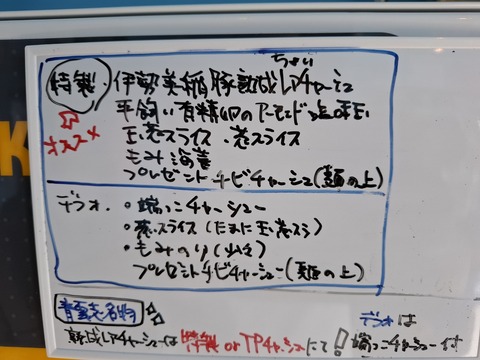 ちょい
特製 伊勢美稲豚熟成レアチャーシュ
オススメ
平飼い有精卵のアーモンド味玉
玉ねぎスライス・ネギスライス
もみ海苔
プレゼントチビチャーシュ(麺の上)
デフォ.・端っこチャーシュー
・葱スライス(たまに玉葱スラ)
・もみのり(少々)
プレゼントチビチャーシュー(麺の上)
青雲志名物
熟成レアチャーシューは特製 or TPチャーシュにて!
デフォは
端っこチャーシュー付